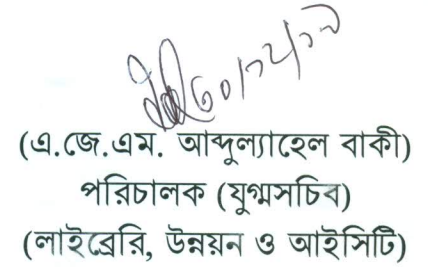 ৩০/১২/১৯
(এ.জে.এম. আব্দুল্যাহেল বাকী)
পরিচালক (যুগ্মসচিব)
(লাইব্রেরি, উন্নয়ন ও আইসিটি)